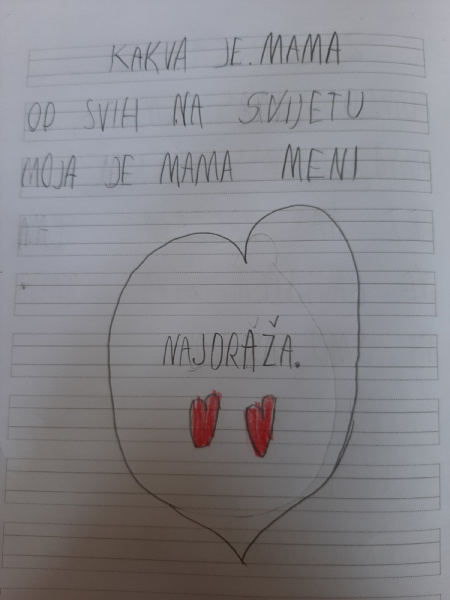 KAKVA JE.MAMA
OD SVIH NA SVIJETU
MOJA JE MAMA MENI
NAJDRAŽA.